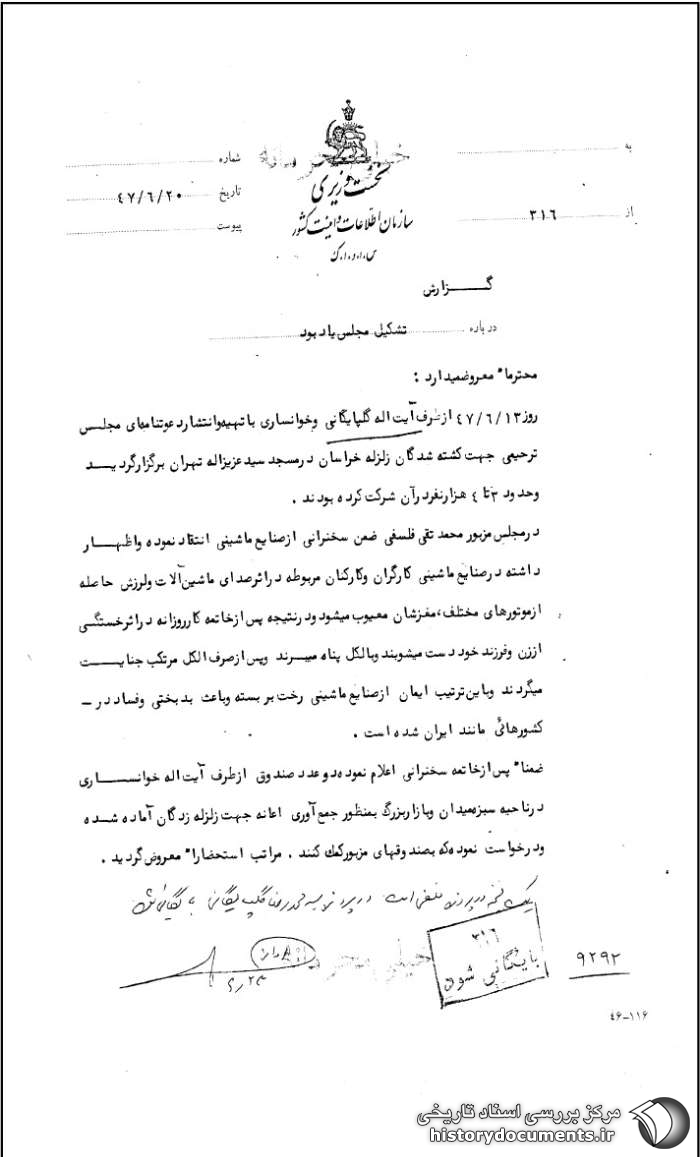 به
خیلی محرمانه
شماره
نخست وزیری
تاریخ ۴۷/۶/۲۰
از ۳۱۶
سازمان اطلاعات و امنیت کشور
پیوست
س.ا.و.ا.ک
گـــزارش
درباره تشکیل مجلس یادبود
محترماً معروضمیدارد :
روز ۴۷/۶/۱۳ ازطرف آیت اله گلپایگانی وخوانساری باتهیه وانتشاردعوتنامه‌ای مجلس
ترحیمی جهت کشته شدگان زلزله خراسان درمسجد سید عزیزاله تهران برگزارگردیـــد
وحدود ۳ تا ۴ هزارنفردرآن شرکت کرده بودند .
درمجلس مزبور محمد تقی فلسفی ضمن سخنرانی ازصنایع ماشینی انتقاد نموده واظهـــار
داشته درصنایع ماشینی کارگران وکارکنان مربوطه دراثرصدای ماشین آلات ولرزش حاصله
ازموتورهای مختلف،مغزشان معیوب میشود ودرنتیجه پس ازخاتمه کارروزانه دراثرخستگی
اززن وفرزند خود دست میشویند وبالکل پناه میبرند وپس ازصرف الکل مرتکب جنایـــت
میگردند وباین ترتیب ایمان ازصنایع ماشینی رخت بربسته وباعث بدبختی وفساد در ـ
کشورهائی مانند ایران شده است .
ضمناً پس ازخاتمه سخنرانی اعلام نموده دوعدد صندوق ازطرف آیت اله خوانســـاری
درناحیه سبزه میدان وبازاربزرگ بمنظور جمع آوری اعانه جهت زلزله زدگان آماده شـــده
ودرخواست نموده که بصندوقهای مزبورکمك کنند . مراتب استحضاراً معروض گردید .
یک نسخه در پرونده فلسفی است در پرونده سید محمدرضا گلپایگانی بایگانی شود
۳۱۶
بایگانی شود
خیلی محرمانه
۹۲۹۲
۶/۲۳
۴۶-۱۱۶
مرکز بررسی اسناد تاریخی
historydocuments.ir